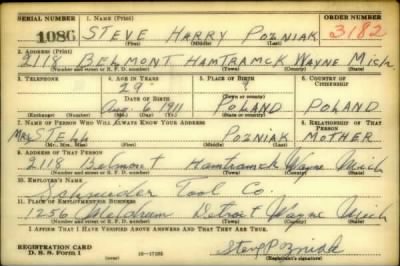 SERIAL NUMBER 1. NAME (Print) ORDER NUMBER
1086 STEVE HARRY POZNIAK 3182
(First) (Middle) (Last)
2. ADDRESS (Print)
2118 BELMONT HAMTRAMCK WAYNE MICH
(Number and street or R. F. D. number) (Town) (County) (State)
3. TELEPHONE 4. AGE IN YEARS 5. PLACE OF BIRTH 6. COUNTRY OF CITIZENSHIP
29
DATE OF BIRTH (Town or county)
Aug. 6, 1911 POLAND POLAND
(Exchange) (Number) (Mo.) (Day) (Yr.) (State or country)
7. NAME OF PERSON WHO WILL ALWAYS KNOW YOUR ADDRESS 8. RELATIONSHIP OF THAT PERSON
Mrs STELL POZNIAK MOTHER
(Mr., Mrs., Miss) (First) (Middle) (Last)
9. ADDRESS OF THAT PERSON
2118 Belmont Hamtramck Wayne Mich
(Number and street or R. F. D. number) (Town) (County) (State)
10. EMPLOYER'S NAME
Schneider Tool Co.
11. PLACE OF EMPLOYMENT OR BUSINESS
1256 Meldrum Detroit Wayne Mich
(Number and street or R. F. D. number) (Town) (County) (State)
I AFFIRM THAT I HAVE VERIFIED ABOVE ANSWERS AND THAT THEY ARE TRUE.
REGISTRATION CARD
D. S. S. Form 1 16—17105 Steve Pozniak
(Registrant's signature)